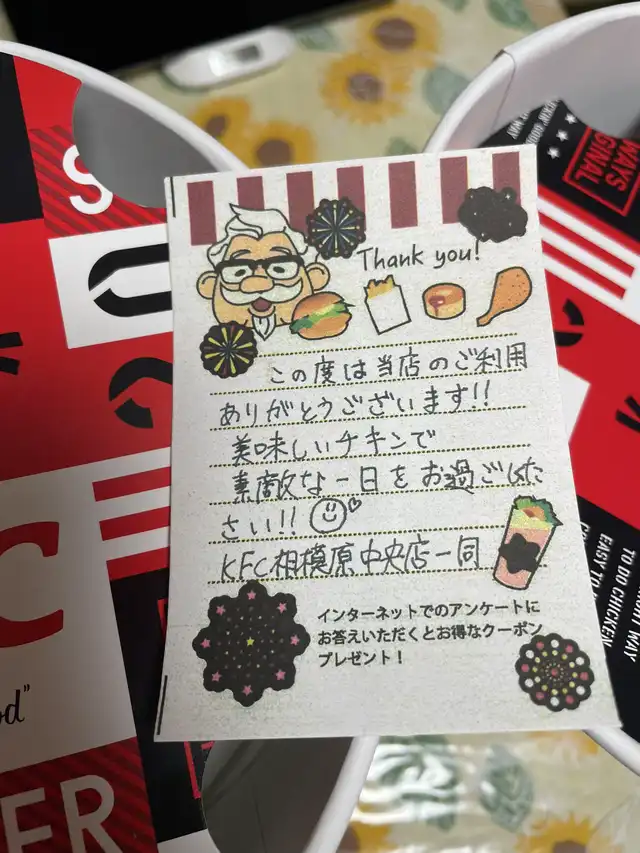 Thank you!
この度は当店のご利用
ありがとうございます!!
美味しいチキンで
素敵な一日をお過ごしくだ
さい!!
KFC相模原中央店一同
インターネットでのアンケートに
お答えいただくとお得なクーポン
プレゼント！
S
C
od"
ER
WAYS
GINAL
TO DO CHICKEN
EASY
WAY